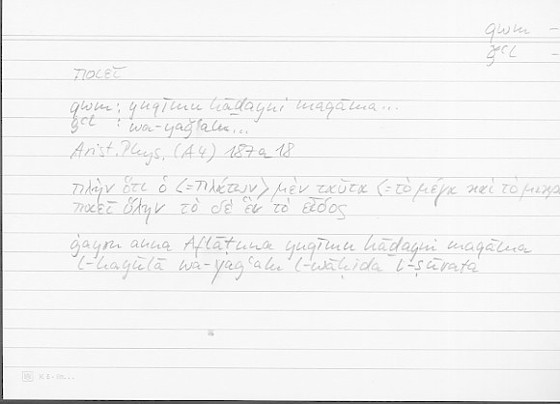 qwm –
ǧʿl –
ποιεῖ
qwm: yuqīmu hāḏayni maqāma...
ǧʿl : wa-yaǧʿalu...
Arist. Phys. (A4) 187a18
πλὴν ὅτι ὁ <=Πλάτων> μὲν ταῦτα <=τὸ μέγα καὶ τὸ μικρ
ποιεῖ ὕλην τὸ δὲ ἓν τὸ εἶδος
ġayra anna Aflāṭuna yuqīmu hāḏayni maqāma
l-hayūlā wa-yaǧʿalu l-wāḥida l-ṣūrata